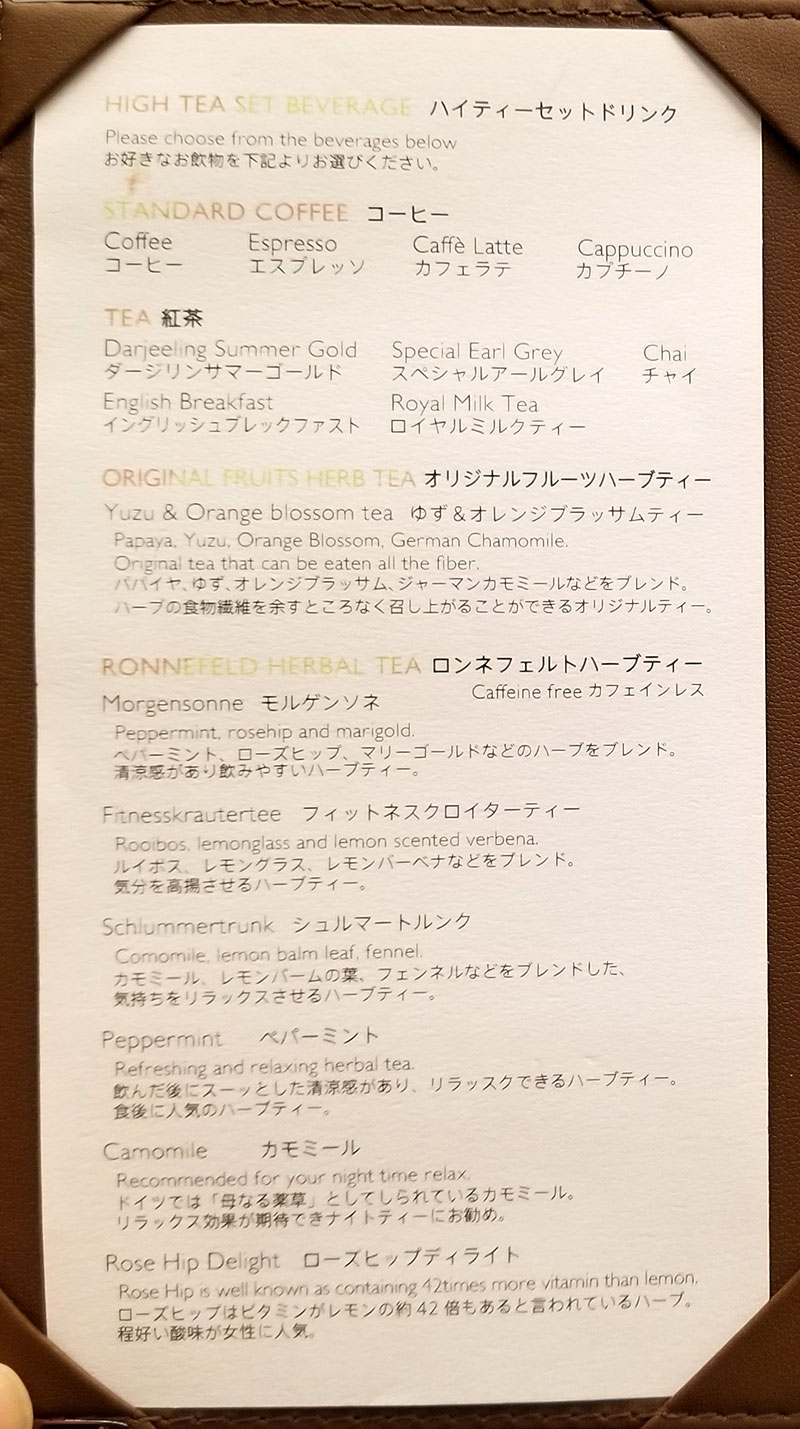 HIGH TEA SET BEVERAGE ハイティーセットドリンク
Please choose from the beverages below
お好きなお飲物を下記よりお選びください。
STANDARD COFFEE コーヒー
Coffee Espresso Caffè Latte Cappuccino
コーヒー エスプレッソ カフェラテ カプチーノ
TEA 紅茶
Darjeeling Summer Gold Special Earl Grey Chai
ダージリンサマーゴールド スペシャルアールグレイ チャイ
English Breakfast Royal Milk Tea
イングリッシュブレックファスト ロイヤルミルクティー
ORIGINAL FRUITS HERB TEA オリジナルフルーツハーブティー
Yuzu & Orange blossom tea ゆず&オレンジブラッサムティー
Papaya, Yuzu, Orange Blossom, German Chamomile.
Original tea that can be eaten all the fiber.
パパイヤ、ゆず、オレンジブラッサム、ジャーマンカモミールなどをブレンド。
ハーブの食物繊維を余すところなく召し上がることができるオリジナルティー。
RONNEFELD HERBAL TEA ロンネフェルトハーブティー
Caffeine free カフェインレス
Morgensonne モルゲンソネ
Peppermint, rosehip and marigold.
ペパーミント、ローズヒップ、マリーゴールドなどのハーブをブレンド。
清涼感があり飲みやすいハーブティー。
Fitnesskrautertee フィットネスクロイターティー
Rooibos, lemonglass and lemon scented verbena.
ルイボス、レモングラス、レモンバーベナなどをブレンド。
気分を高揚させるハーブティー。
Schlummertrunk シュルマートルンク
Comomile, lemon balm leaf, fennel.
カモミール、レモンバームの葉、フェンネルなどをブレンドした、
気持ちをリラックスさせるハーブティー。
Peppermint ペパーミント
Refreshing and relaxing herbal tea.
飲んだ後にスーッとした清涼感があり、リラッスクできるハーブティー。
食後に人気のハーブティー。
Camomile カモミール
Recommended for your night time relax.
ドイツでは「母なる薬草」としてしられているカモミール。
リラックス効果が期待できナイトティーにお勧め。
Rose Hip Delight ローズヒップディライト
Rose Hip is well known as containing 42times more vitamin than lemon.
ローズヒップはビタミンがレモンの約 42 倍もあると言われているハーブ。
程好い酸味が女性に人気。